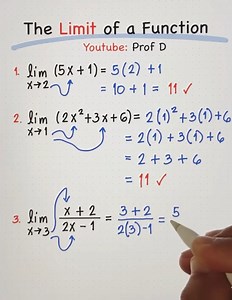 The Limit of a Function
Youtube: Prof D
1. lim x→2 (5x+1) = 5(2) + 1
= 10 + 1 = 11 ✓
2. lim x→1 (2x²+3x+6) = 2(1)²+3(1)+6
= 2(1)+3(1)+6
= 2 + 3 + 6
= 11 ✓
3. lim x→3 (x + 2)/(2x - 1) = (3 + 2)/(2(3)-1) = 5